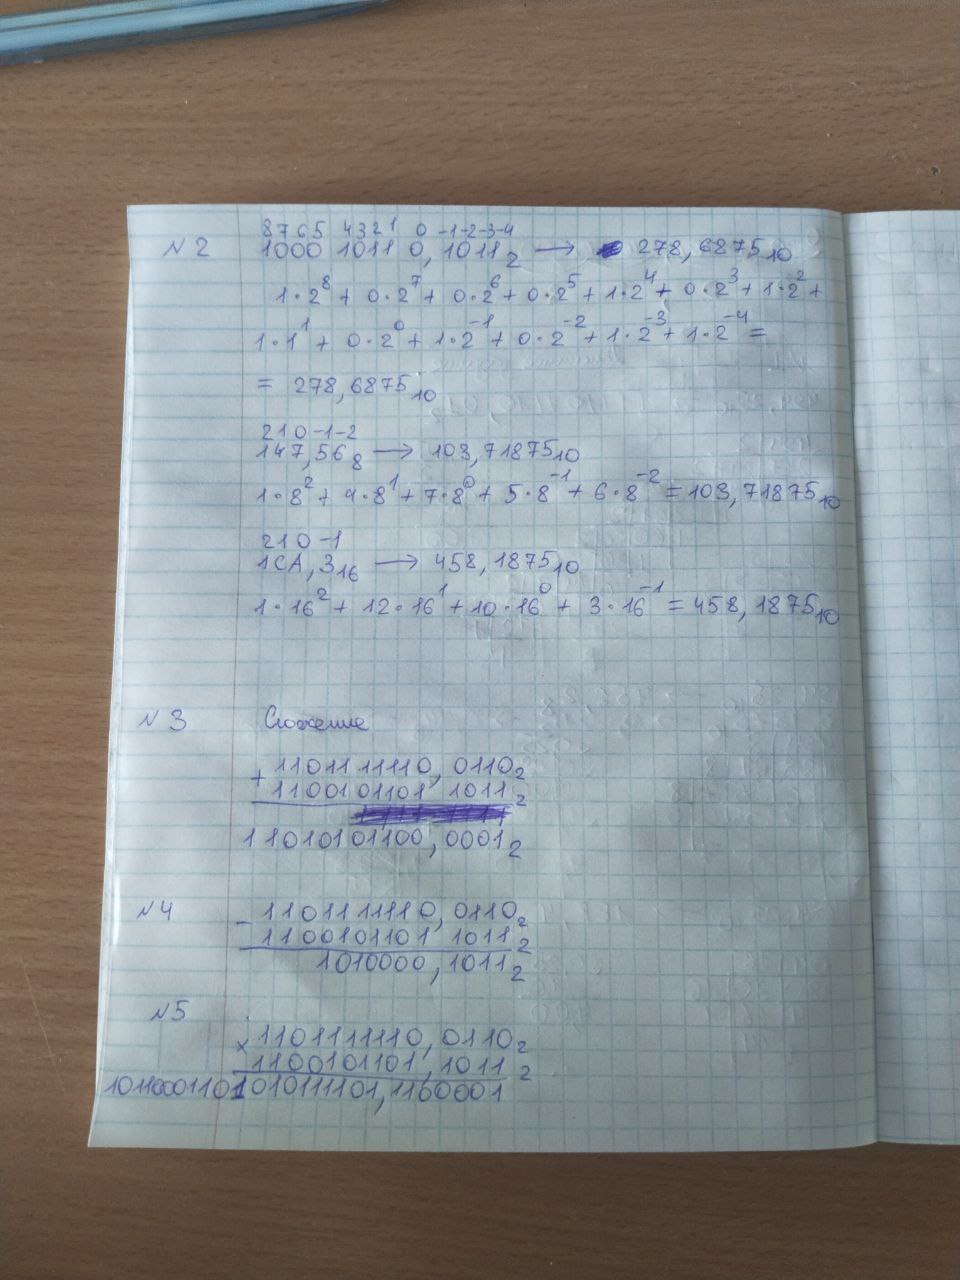 8765 4321 0 -1-2-3-4
№2 1000 1011 0, 1011₂ → 278,6875₁₀
1·2⁸ + 0·2⁷ + 0·2⁶ + 0·2⁵ + 1·2⁴ + 0·2³ + 1·2² +
1·1¹ + 0·2⁰ + 1·2⁻¹ + 0·2⁻² + 1·2⁻³ + 1·2⁻⁴ =
= 278,6875₁₀
210-1-2
147,56₈ → 103,71875₁₀
1·8² + 4·8¹ + 7·8⁰ + 5·8⁻¹ + 6·8⁻² = 103,71875₁₀
210-1
1CA,3₁₆ → 458,1875₁₀
1·16² + 12·16¹ + 10·16⁰ + 3·16⁻¹ = 458,1875₁₀
№3 Сложение
+ 1101111110,0110₂
1100101101,1011₂
11010101100,0001₂
№4 - 1101111110,0110₂
1100101101 1011₂
1010000,1011₂
№5
× 1101111110,0110₂
1100101101,1011₂
10110001101010111101,1100001